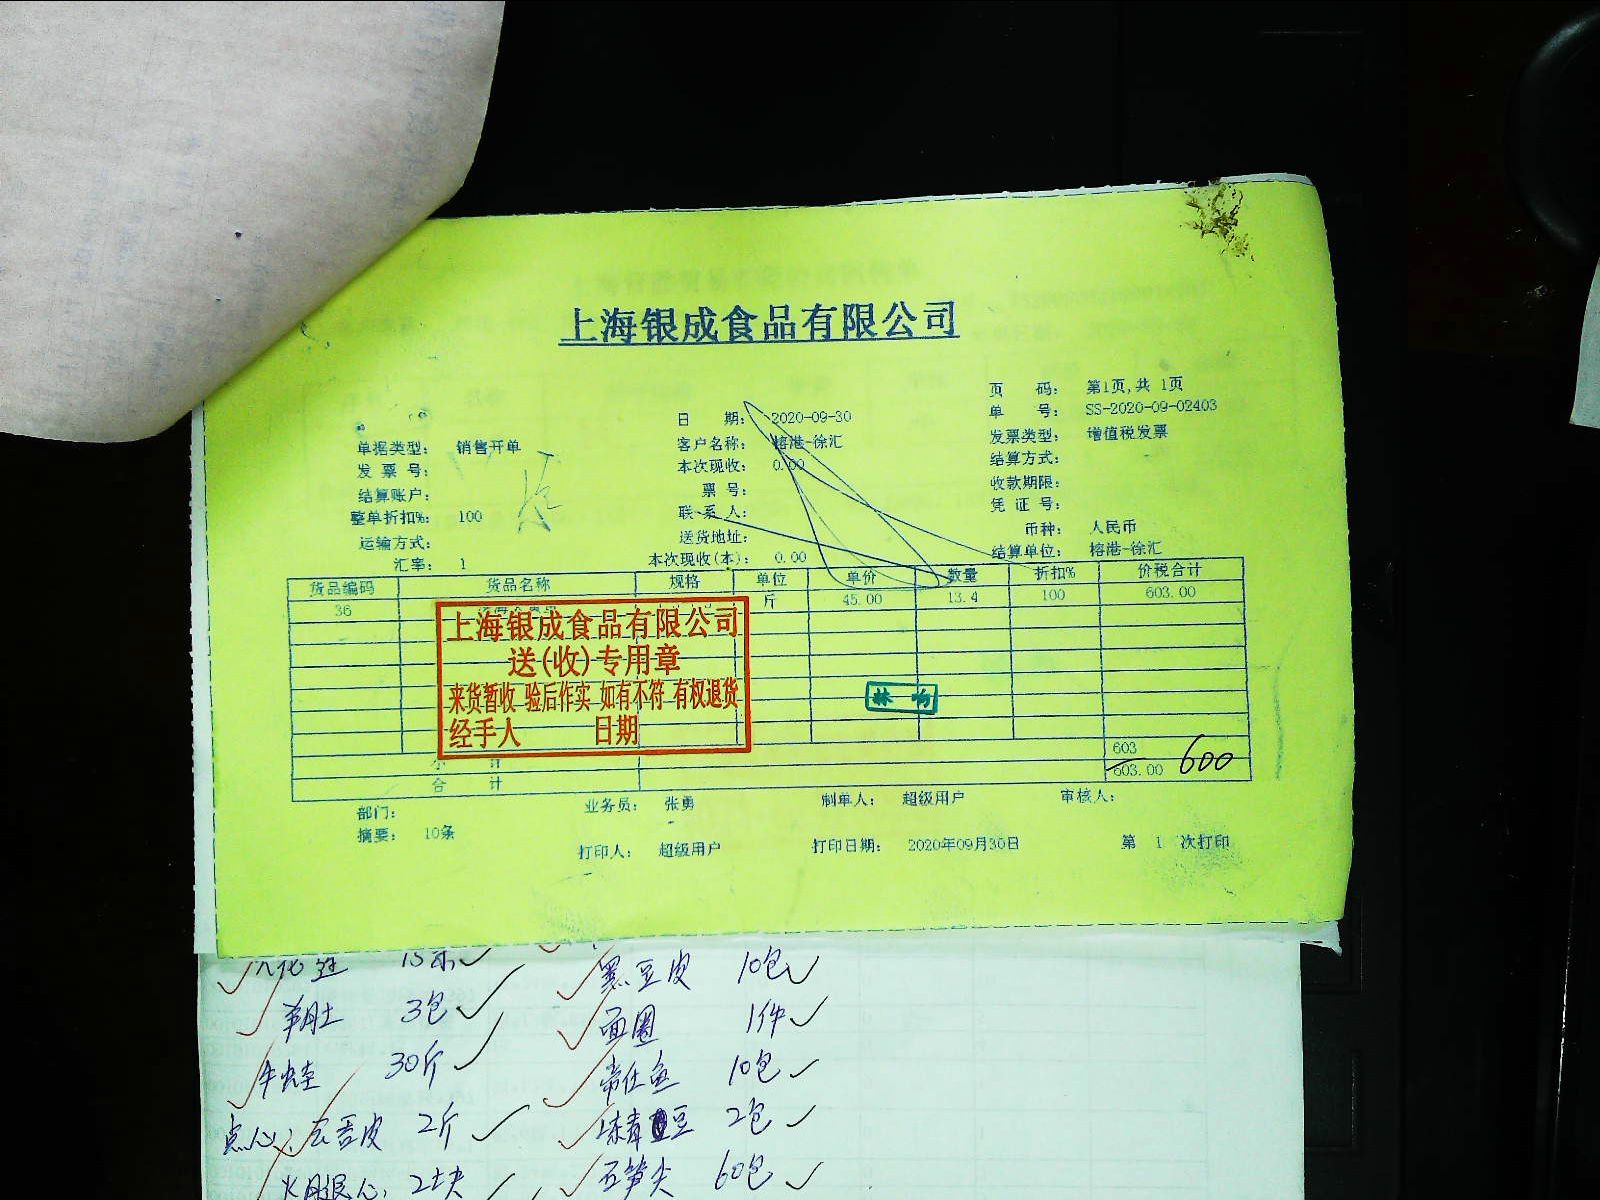 上海银成食品有限公司
页 码: 第1页,共 1页
日 期: 2020-09-30
单 号: SS-2020-09-02403
单据类型: 销售开单
客户名称: 榕港-徐汇
发票类型: 增值税发票
发 票 号:
本次现收: 0.00
结算方式:
结算账户:
票 号:
收款期限:
整单折扣%: 100
联 系 人:
凭 证 号:
运输方式:
送货地址:
币种: 人民币
汇率: 1
本次现收(本): 0.00
结算单位: 榕港-徐汇
货品编码 货品名称 规格 单位 单价 数量 折扣% 价税合计
36 斤 45.00 13.4 100 603.00
上海银成食品有限公司
送(收)专用章
来货暂收 验后作实 如有不符 有权退货
经手人 日期
小 计 603
合 计 603.00 600
部门: 业务员: 张勇 制单人: 超级用户 审核人:
摘要: 10条
打印人: 超级用户 打印日期: 2020年09月30日 第 1 次打印
黑豆皮 10包
羊肚 3包 面圈 1件
牛蛙 30斤 10包
点心: 2斤 2包
火腿 2块 笋尖 60包